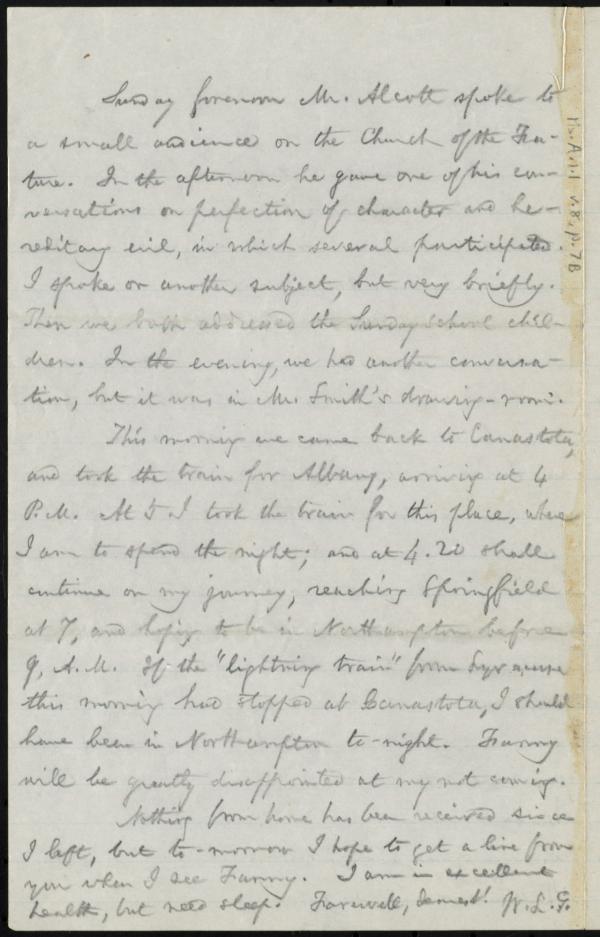 Sunday forenoon Mr. Alcott spoke to
a small audience on the Church of the Fu-
ture. In the afternoon he gave one of his con-
versations on perfection of character and he-
reditary evil, in which several participated.
I spoke on another subject, but very briefly.
Then we both addressed the Sunday School chil-
dren. In the evening, we had another conversa-
tion, but it was in Mr. Smith's drawing-room.
This morning we came back to Canastota,
and took the train for Albany, arriving at 4
P.M. At 5 I took the train for this place, where
I am to spend the night; and at 4.20 shall
continue on my journey, reaching Springfield
at 7, and hoping to be in Northampton before
9, A.M. If the "lightning train" from Syracuse
this morning had stopped at Canastota, I should
have been in Northampton to-night. Fanny
will be greatly disappointed at my not coming.
Nothing from home has been received since
I left, but to-morrow I hope to get a line from
you when I see Fanny. I am in excellent
health, but need sleep. Farewell, dearest! W. L. G.
Ms. A.1.1 v.8, p.7B